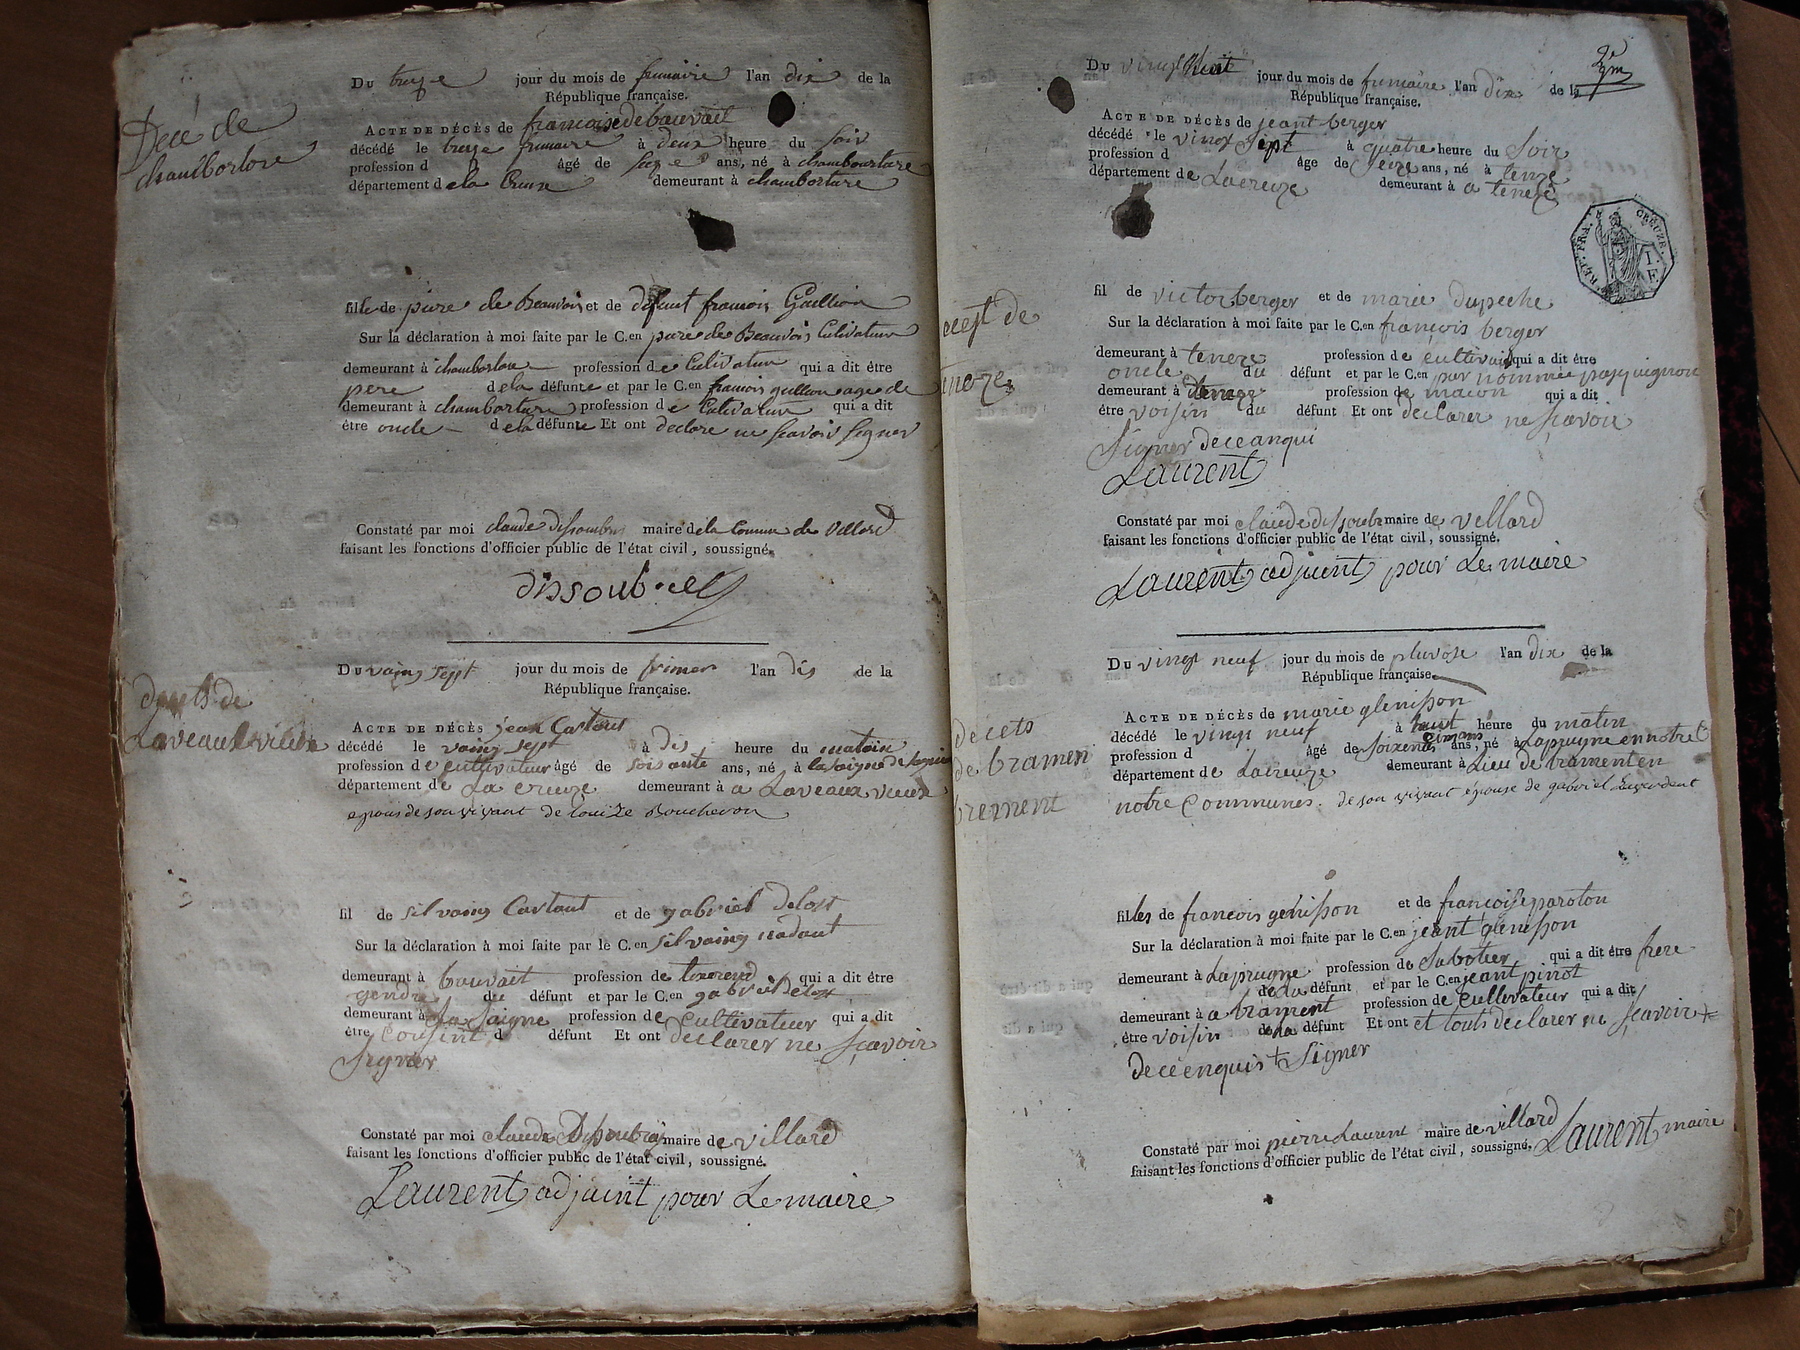 Du treze jour du mois de frimaire l'an dix de la
République française.
Decé de
chambortore
ACTE DE DÉCÈS de francoise de bauvait
décédé le treze frimaire à deux heure du soir
profession d âgé de seze ans, né à chambourtare
département de la Creuse demeurant à chambortare
fille de piere de Beauvois et de defunt francois Guillion
Sur la déclaration à moi faite par le C.en piere de Beauvois Culivature
demeurant à chambortore profession de Culivature qui a dit être
pere de la défunte et par le C.en francois guillion age de
demeurant à chambortare profession de Culivature qui a dit
être oncle de la défunte Et ont declare ne scavoir signer
Constaté par moi claude dissoubre maire de la Commune de Villard
faisant les fonctions d'officier public de l'état civil, soussigné.
dissoub
Du vaing sept jour du mois de frimer l'an dis de la
République française.
de
Laveauxvieux
ACTE DE DÉCÈS jean Cartout
décédé le vaing sept à dis heure du matain
profession de Cultivateur âgé de soisante ans, né à la saigne de
département de La creuze demeurant à a Laveaux vieux
epous de son vivant de Louize Boucheron
fil de silvaing Cartaut et de gabriel delost
Sur la déclaration à moi faite par le C.en silvaing nadaut
demeurant à bauvait profession de tixerend qui a dit être
gendre du défunt et par le C.en gabriel delost
demeurant à La Saigne profession de Cultivateur qui a dit
être Cousint d défunt Et ont declarer ne scavoir
signer
Constaté par moi claude Dissoubre maire de villard
faisant les fonctions d'officier public de l'état civil, soussigné.
Laurent adjuint pour Le maire
Du vingt huit jour du mois de frimaire l'an dix de la
République française.
ACTE DE DÉCÈS de jeant berger
décédé le vingt sept à quatre heure du soir
profession d âge de seize ans, né à teneze
département de Lacreuze demeurant à a teneze
REP. FRA.
CREUZE
I.
F.
fil de victor berger et de marie dupeche
de
Sur la déclaration à moi faite par le C.en francois berger
demeurant à teneze profession de cultivait qui a dit être
oncle du défunt et par le C.en par nommée
demeurant à teneze profession de macon qui a dit
être voisin du défunt Et ont declarer ne scavoir
signer de ce anqui
Laurent
Constaté par moi claude dissoubre maire de villard
faisant les fonctions d'officier public de l'état civil, soussigné.
Laurent adjuint pour Le maire
Du vingt neuf jour du mois de pluvose l'an dix de la
République française.
decets
de bramen
brement
ACTE DE DÉCÈS de marie glenisson
décédé le vingt neuf à huit heure du matin
profession d âgé de soixente cinq ans, né à Laprugne en notre C
département de Lacreuze demeurant à Lieu de bramenten
notre Communes. de son vivant epouse de gabriel
filles de francois genisson et de francoise paroton
Sur la déclaration à moi faite par le C.en jeant glenisson
demeurant à Laprugne profession de sabotier qui a dit être frere
de la défunt et par le C.en jeant pinot
demeurant à a brament profession de Cultivateur qui a dit
être voisin de la défunt Et ont et touts declarer ne scavoir +
de ce enquis + signer
Constaté par moi pierre Laurent maire de villard
faisant les fonctions d'officier public de l'état civil, soussigné. Laurent maire